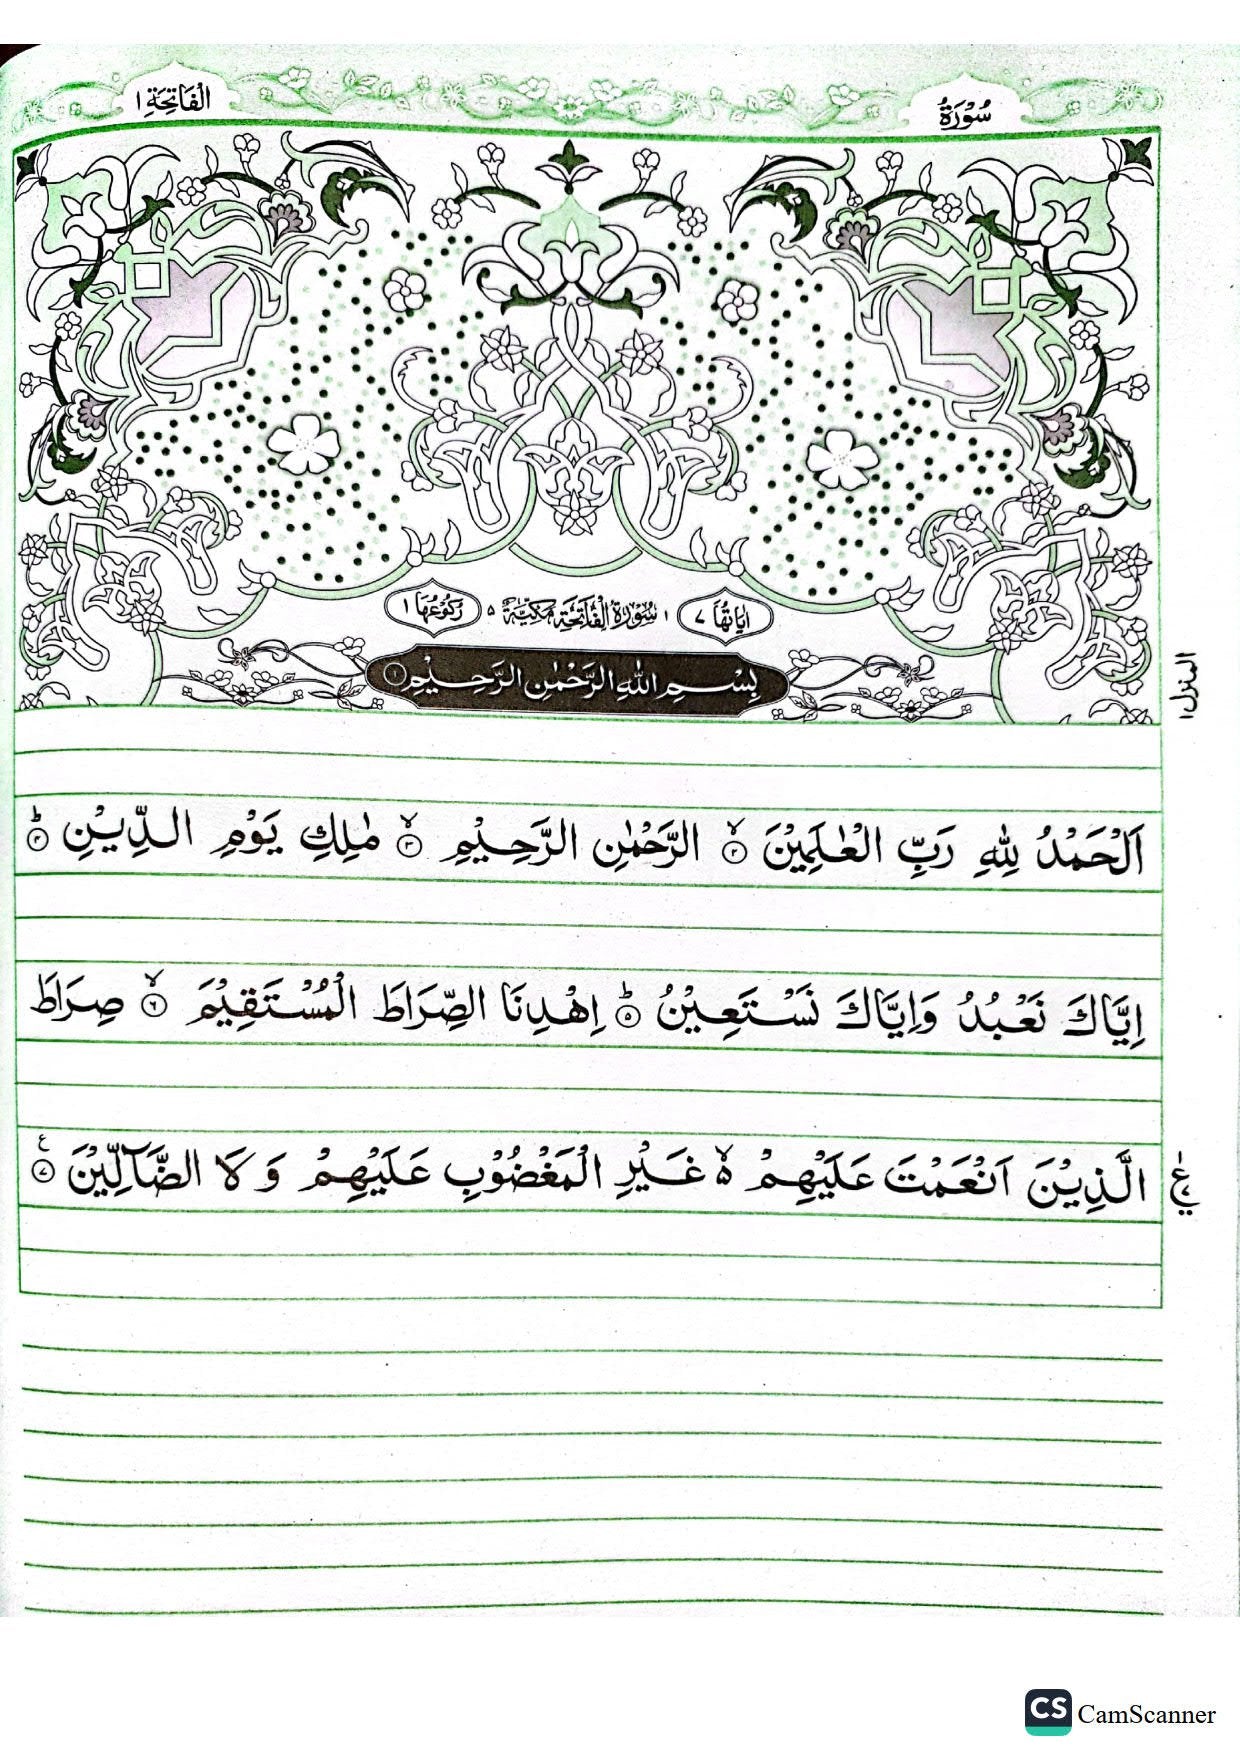 سُوْرَةُ
الْفَاتِحَةِ ١
اٰيَاتُهَا ٧
١ سُوْرَةُ الْفَاتِحَةِ مَكِّيَّةٌ ٥
رُكُوْعُهَا ١
بِسْمِ اللّٰهِ الرَّحْمٰنِ الرَّحِيْمِ ١
المنزل ١
اَلْحَمْدُ لِلّٰهِ رَبِّ الْعٰلَمِيْنَ ۙ٢ الرَّحْمٰنِ الرَّحِيْمِ ۙ٣ مٰلِكِ يَوْمِ الدِّيْنِ ؕ٤
اِيَّاكَ نَعْبُدُ وَاِيَّاكَ نَسْتَعِيْنُ ؕ٥ اِهْدِنَا الصِّرَاطَ الْمُسْتَقِيْمَ ۙ٦ صِرَاطَ
الَّذِيْنَ اَنْعَمْتَ عَلَيْهِمْ ۙ۵ غَيْرِ الْمَغْضُوْبِ عَلَيْهِمْ وَلَا الضَّآلِّيْنَ ٧ ع
CS CamScanner